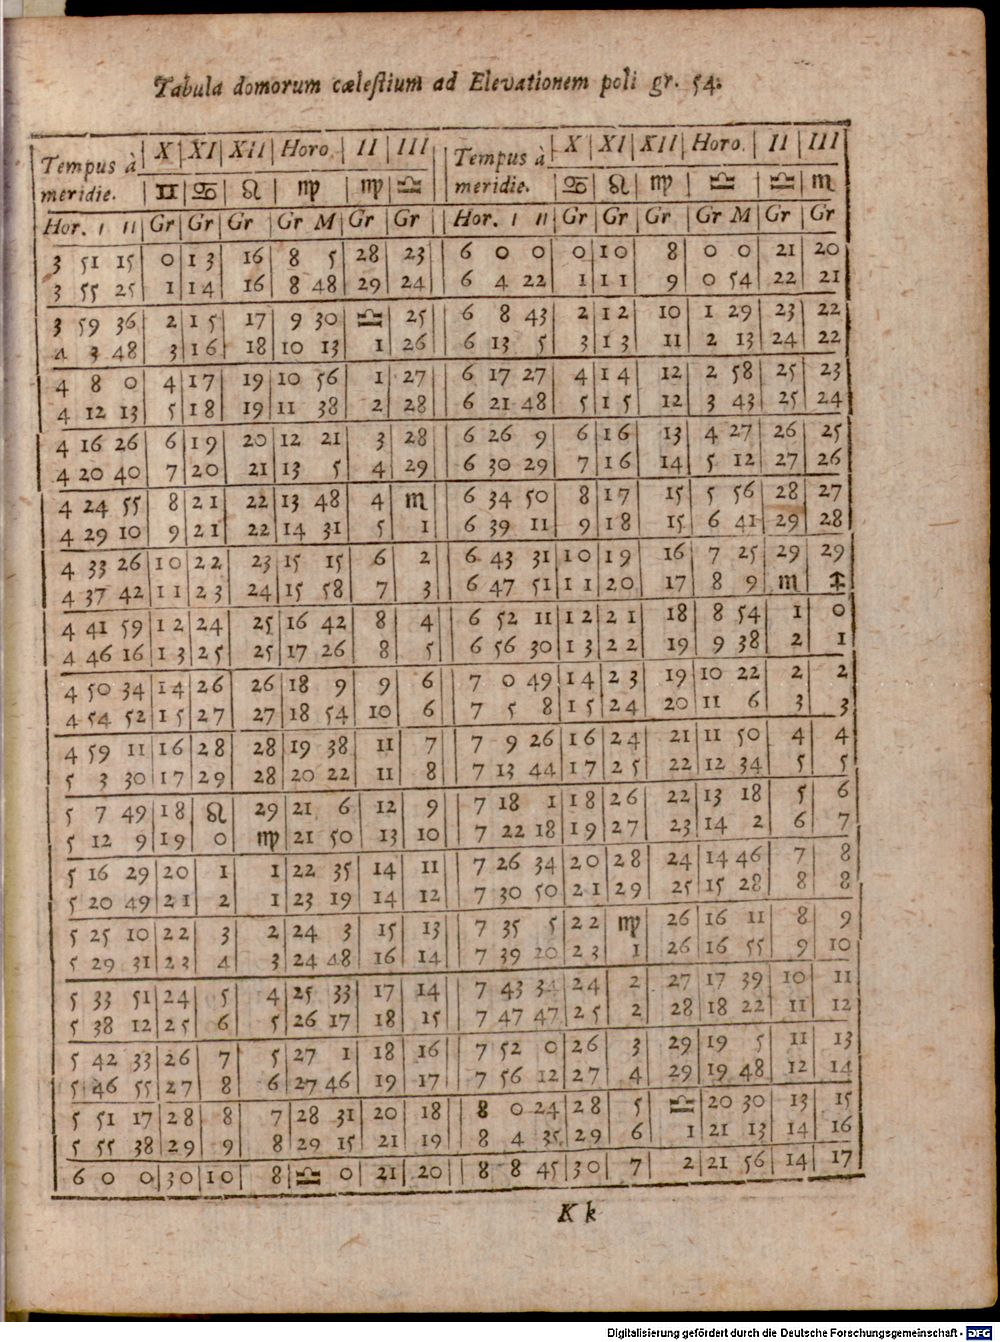 Tabula domorum cælestium ad Elevationem poli gr. 54.
Tempus à meridie. | X | XI | XII | Horo. | II | III || Tempus à meridie. | X | XI | XII | Horo. | II | III
♊ | ♋ | ♌ | ♍ | ♍ | ♎ || ♋ | ♌ | ♍ | ♎ | ♎ | ♏
Hor. ı ıı | Gr | Gr | Gr | Gr M | Gr | Gr || Hor. ı ıı | Gr | Gr | Gr | Gr M | Gr | Gr
3 51 15 | 0 | 13 | 16 | 8 5 | 28 | 23 || 6 0 0 | 0 | 10 | 8 | 0 0 | 21 | 20
3 55 25 | 1 | 14 | 16 | 8 48 | 29 | 24 || 6 4 22 | 1 | 11 | 9 | 0 54 | 22 | 21
3 59 36 | 2 | 15 | 17 | 9 30 | ♎ | 25 || 6 8 43 | 2 | 12 | 10 | 1 29 | 23 | 22
4 3 48 | 3 | 16 | 18 | 10 13 | 1 | 26 || 6 13 5 | 3 | 13 | 11 | 2 13 | 24 | 22
4 8 0 | 4 | 17 | 19 | 10 56 | 1 | 27 || 6 17 27 | 4 | 14 | 12 | 2 58 | 25 | 23
4 12 13 | 5 | 18 | 19 | 11 38 | 2 | 28 || 6 21 48 | 5 | 15 | 12 | 3 43 | 25 | 24
4 16 26 | 6 | 19 | 20 | 12 21 | 3 | 28 || 6 26 9 | 6 | 16 | 13 | 4 27 | 26 | 25
4 20 40 | 7 | 20 | 21 | 13 5 | 4 | 29 || 6 30 29 | 7 | 16 | 14 | 5 12 | 27 | 26
4 24 55 | 8 | 21 | 22 | 13 48 | 4 | ♏ || 6 34 50 | 8 | 17 | 15 | 5 56 | 28 | 27
4 29 10 | 9 | 21 | 22 | 14 31 | 5 | 1 || 6 39 11 | 9 | 18 | 15 | 6 41 | 29 | 28
4 33 26 | 10 | 22 | 23 | 15 15 | 6 | 2 || 6 43 31 | 10 | 19 | 16 | 7 25 | 29 | 29
4 37 42 | 11 | 23 | 24 | 15 58 | 7 | 3 || 6 47 51 | 11 | 20 | 17 | 8 9 | ♏ | ♐
4 41 59 | 12 | 24 | 25 | 16 42 | 8 | 4 || 6 52 11 | 12 | 21 | 18 | 8 54 | 1 | 0
4 46 16 | 13 | 25 | 25 | 17 26 | 8 | 5 || 6 56 30 | 13 | 22 | 19 | 9 38 | 2 | 1
4 50 34 | 14 | 26 | 26 | 18 9 | 9 | 6 || 7 0 49 | 14 | 23 | 19 | 10 22 | 2 | 2
4 54 52 | 15 | 27 | 27 | 18 54 | 10 | 6 || 7 5 8 | 15 | 24 | 20 | 11 6 | 3 | 3
4 59 11 | 16 | 28 | 28 | 19 38 | 11 | 7 || 7 9 26 | 16 | 24 | 21 | 11 50 | 4 | 4
5 3 30 | 17 | 29 | 28 | 20 22 | 11 | 8 || 7 13 44 | 17 | 25 | 22 | 12 34 | 5 | 5
5 7 49 | 18 | ♌ | 29 | 21 6 | 12 | 9 || 7 18 1 | 18 | 26 | 22 | 13 18 | 5 | 6
5 12 9 | 19 | 0 | ♍ | 21 50 | 13 | 10 || 7 22 18 | 19 | 27 | 23 | 14 2 | 6 | 7
5 16 29 | 20 | 1 | 1 | 22 35 | 14 | 11 || 7 26 34 | 20 | 28 | 24 | 14 46 | 7 | 8
5 20 49 | 21 | 2 | 1 | 23 19 | 14 | 12 || 7 30 50 | 21 | 29 | 25 | 15 28 | 8 | 8
5 25 10 | 22 | 3 | 2 | 24 3 | 15 | 13 || 7 35 5 | 22 | ♍ | 26 | 16 11 | 8 | 9
5 29 31 | 23 | 4 | 3 | 24 48 | 16 | 14 || 7 39 20 | 23 | 1 | 26 | 16 55 | 9 | 10
5 33 51 | 24 | 5 | 4 | 25 33 | 17 | 14 || 7 43 34 | 24 | 2 | 27 | 17 39 | 10 | 11
5 38 12 | 25 | 6 | 5 | 26 17 | 18 | 15 || 7 47 47 | 25 | 2 | 28 | 18 22 | 11 | 12
5 42 33 | 26 | 7 | 5 | 27 1 | 18 | 16 || 7 52 0 | 26 | 3 | 29 | 19 5 | 11 | 13
5 46 55 | 27 | 8 | 6 | 27 46 | 19 | 17 || 7 56 12 | 27 | 4 | 29 | 19 48 | 12 | 14
5 51 17 | 28 | 8 | 7 | 28 31 | 20 | 18 || 8 0 24 | 28 | 5 | ♎ | 20 30 | 13 | 15
5 55 38 | 29 | 9 | 8 | 29 15 | 21 | 19 || 8 4 35 | 29 | 6 | 1 | 21 13 | 14 | 16
6 0 0 | 30 | 10 | 8 | ♎ 0 | 21 | 20 || 8 8 45 | 30 | 7 | 2 | 21 56 | 14 | 17
K k
Digitalisierung gefördert durch die Deutsche Forschungsgemeinschaft - DFG